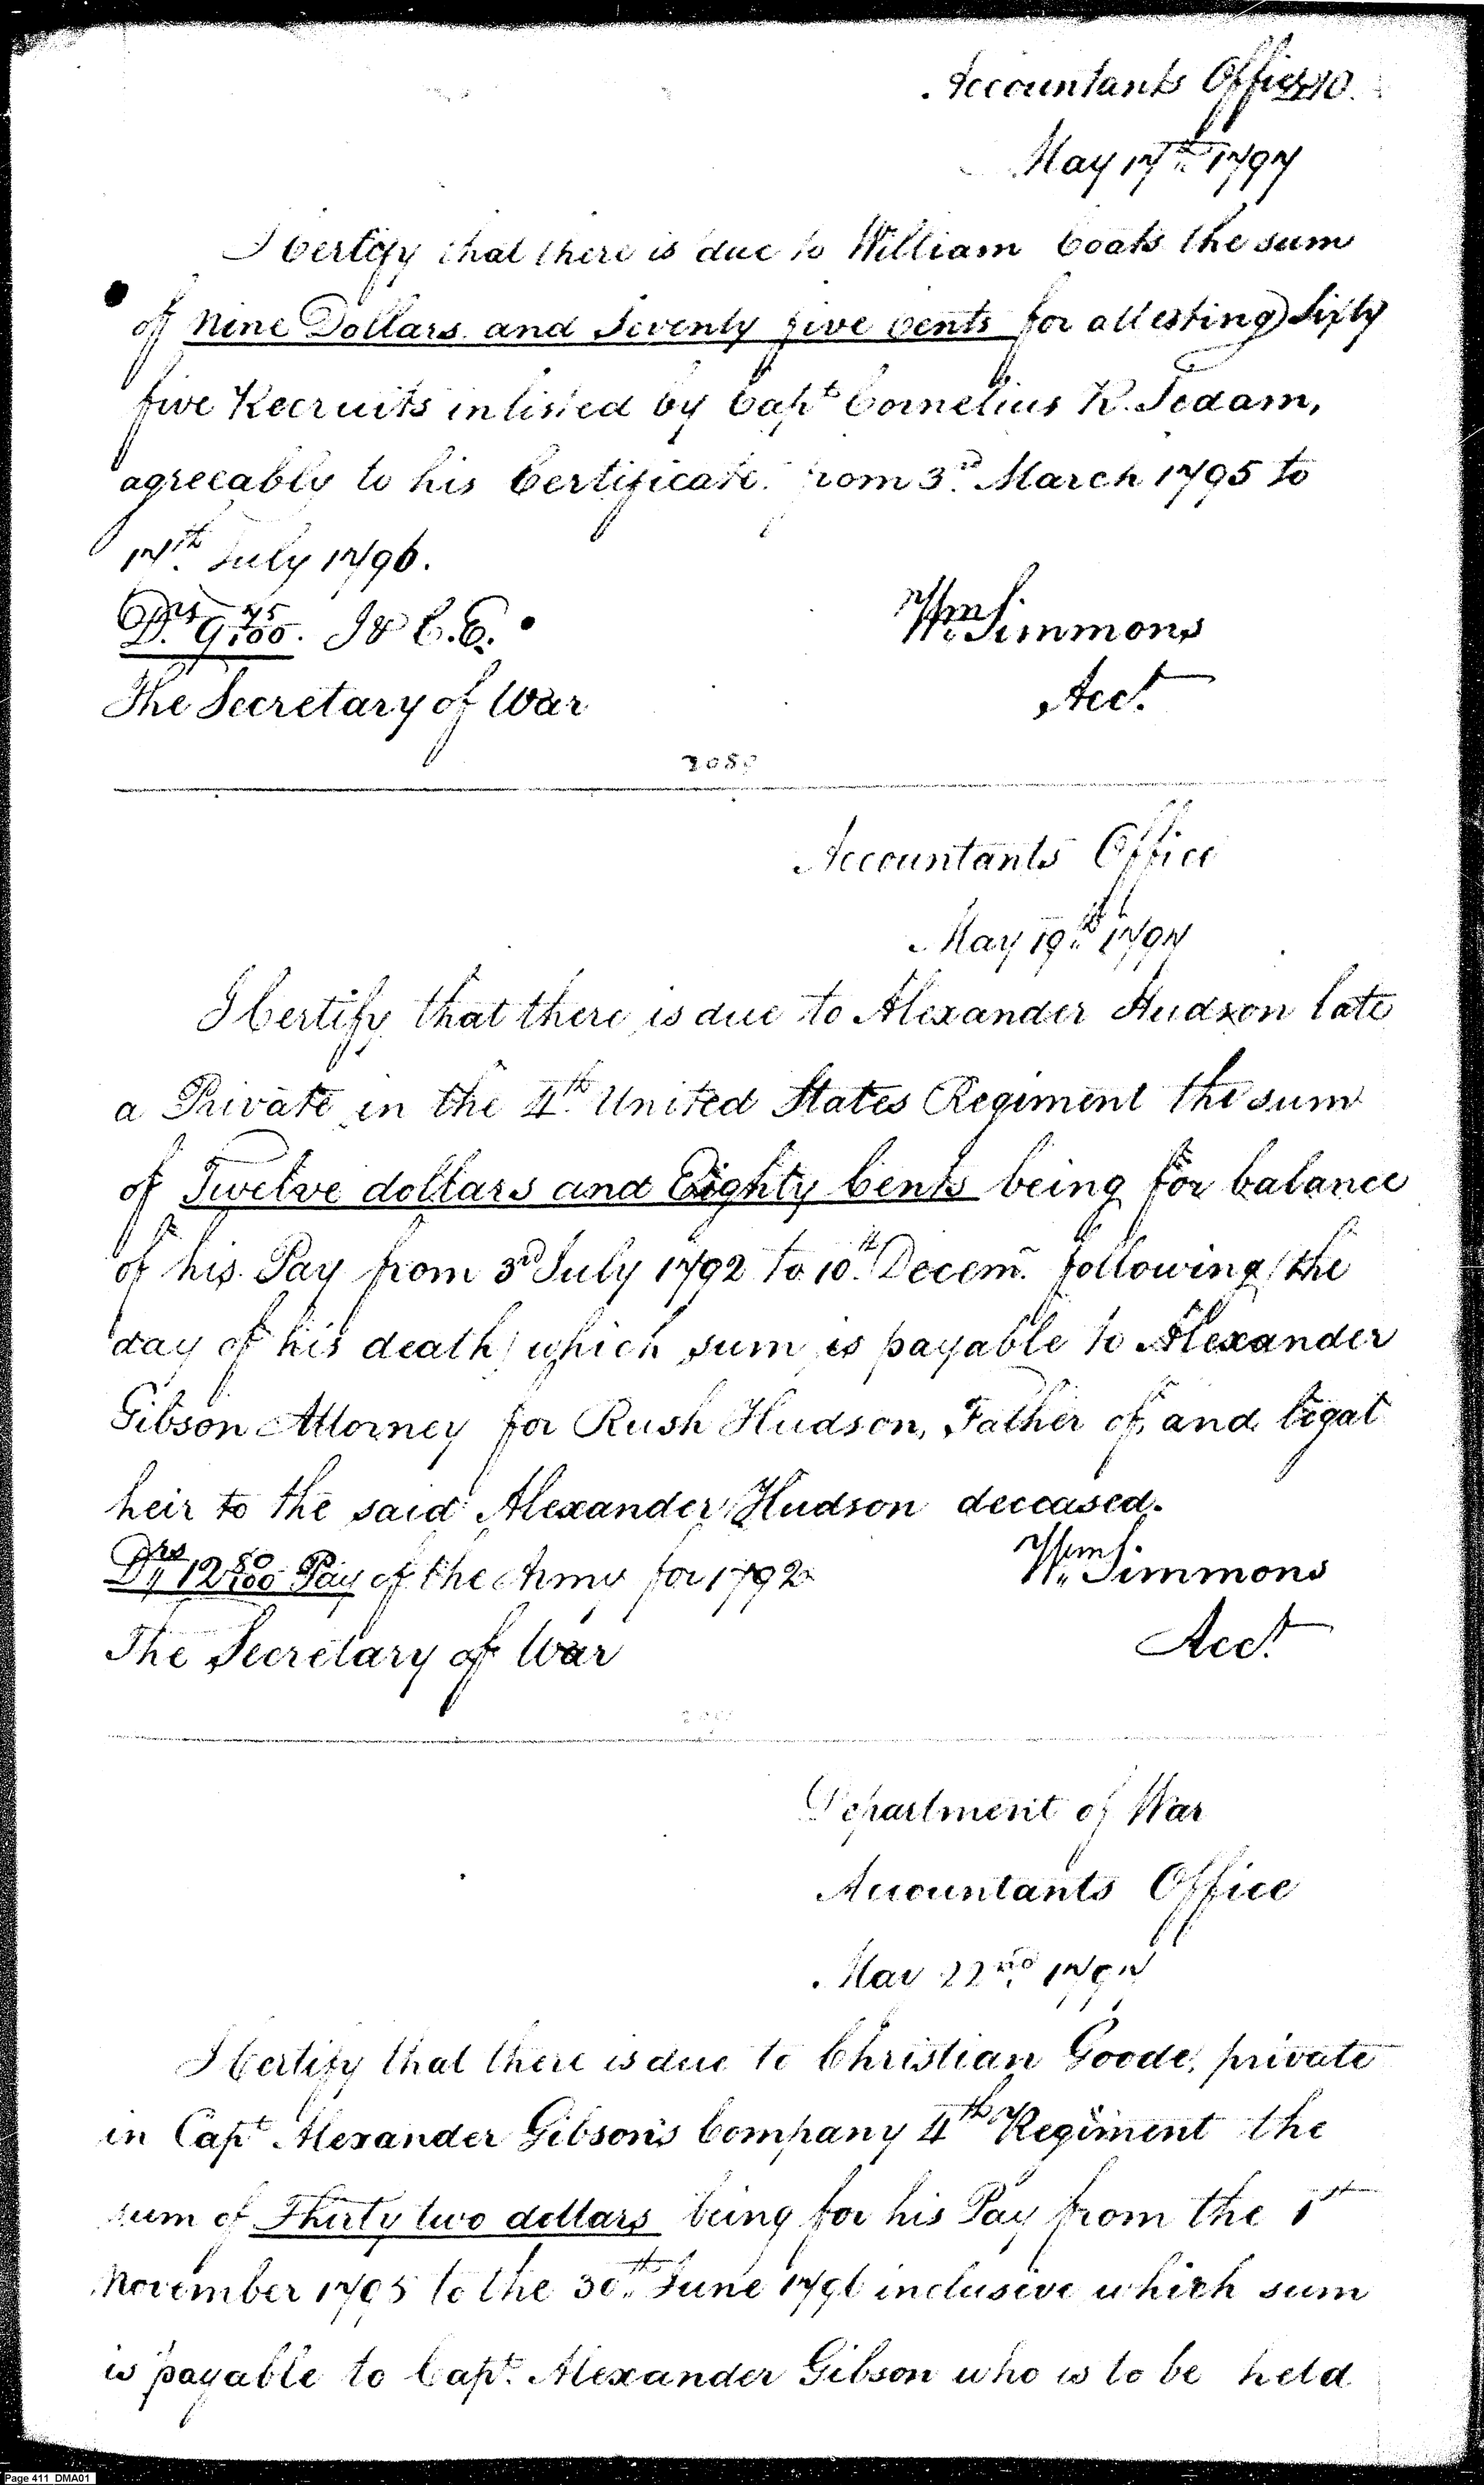 Accountants Office
May 17th 1797
I Certify that there is due to William Coats the sum
of Nine Dollars and Seventy five Cents for attesting Sixty
five Recruits inlisted by Capt Cornelius R. Sedam,
agreeably to his Certificate from 3rd March 1795 to
17th July 1796.
Drs 9 75/100. I & C.E.
Wm Simmons
The Secretary of War
Acct
2089
Accountants Office
May 19th 1797
I Certify that there is due to Alexander Hudson late
a Private in the 4th United States Regiment the sum
of Twelve dollars and Eighty Cents being for balance
of his Pay from 3rd July 1792 to 10th Decemr following (the
day of his death) which sum is payable to Alexander
Gibson Attorney for Rush Hudson, Father of, and legal
heir to the said Alexander Hudson deceased.
Drs 12 80/100 Pay of the Army for 1792
Wm Simmons
The Secretary of War
Acct
Department of War
Accountants Office
May 22nd 1797
I Certify that there is due to Christian Goode, private
in Capt Alexander Gibson's Company 4th Regiment the
sum of Thirty two dollars being for his Pay from the 1st
November 1795 to the 30th June 1796 inclusive which sum
is payable to Capt. Alexander Gibson who is to be held
Page 411 DMA01